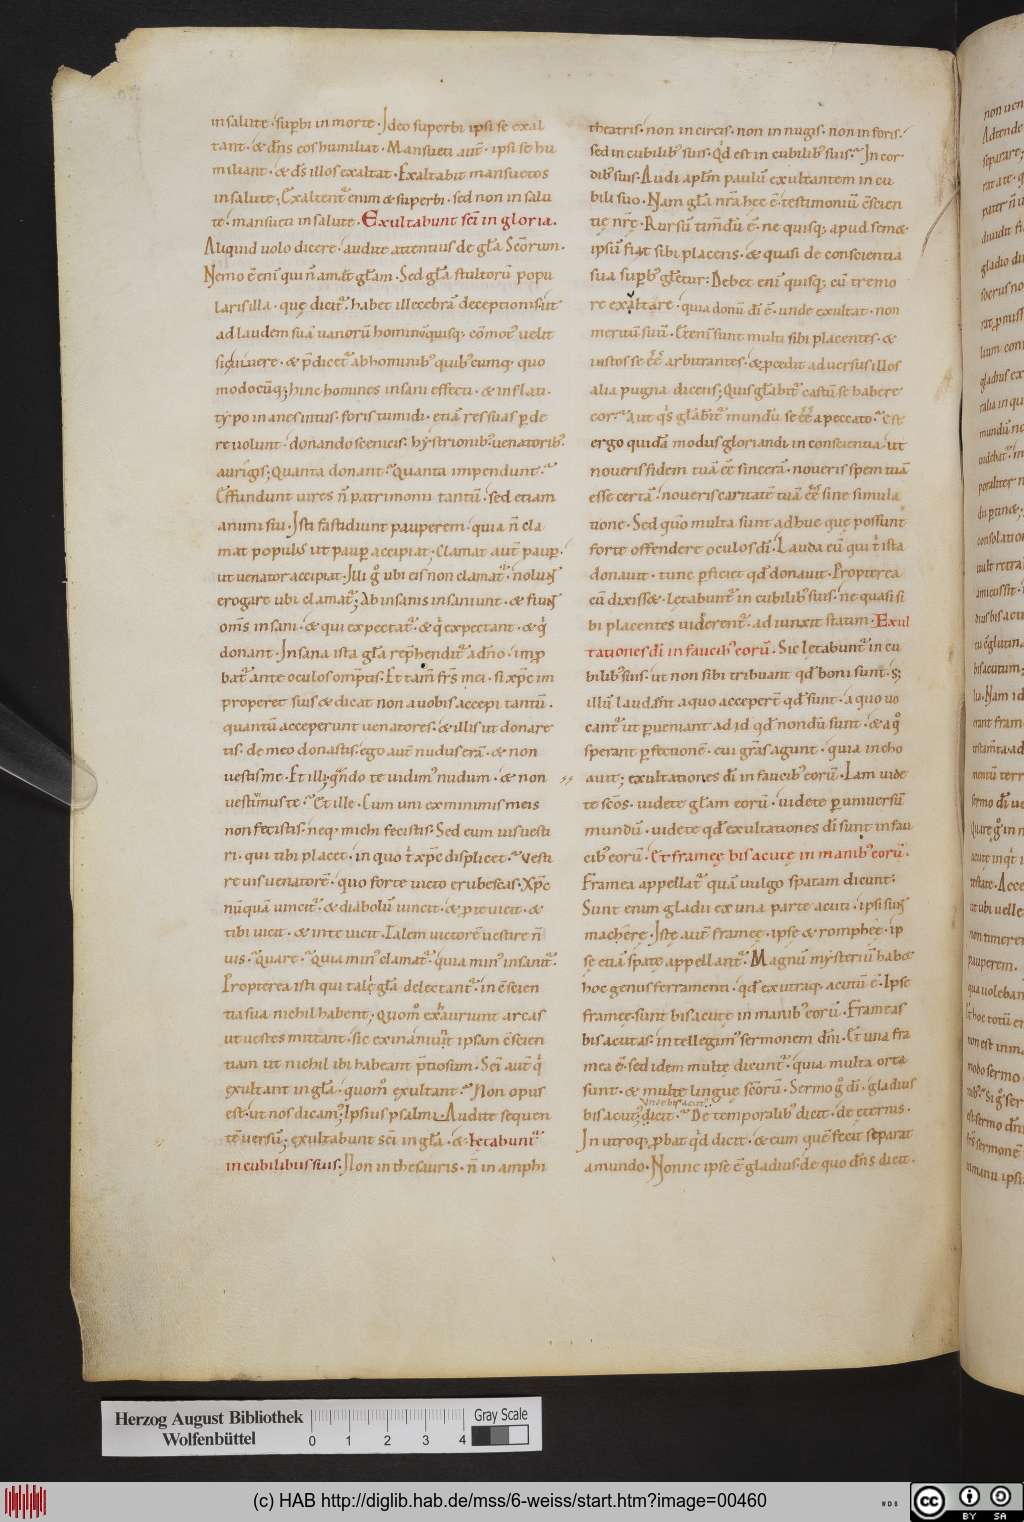 in salute · sup̄bi in morte · Ideo superbi ipsi se exal
tant · & dn̄s eos humiliat · Mansueti aut̄ · ipsi se hu
miliant · & dn̄s illos exaltat · Exaltabit mansuetos
in salute; Exaltent᷑ enim & superbi · sed non in salu
te · mansueti in salute · Exultabunt sc̄i in gloria.
Aliquid uolo dicere · audite attentius de gl̄a Sc̄orum.
Nemo ē enī qui n̄ amat gl̄am. Sed gl̄a stultorū popu
laris illa · quę dicit᷑ · habet illecebrā deceptionis · ut
ad laudem suā uanorū hominū quisq; cōmot᷒ uelit
sic uiuere · & p̄dicet᷑ ab hominib᷒ quib᷒cumq; quo
modocūq; hinc homines insani effecti · & inflati ·
typo inanes intus · foris tumidi · etiā res suas p̱de
re uolunt · donando scenicis · hystrionib᷒ uenatorib᷒
aurigis; Quanta donant · Quanta impendunt ·
Effundunt uires n̄ patrimonii tantū · sed etiam
animi sui · Isti fastidiunt pauperem · quia n̄ cla
mat populus ut paup̱ accipiat · Clamat aut̄ paup̱ ·
ut uenator accipiat · Illi g̊ ubi eis non clamat᷑ · nolunt
erogare ubi clamat᷑; Ab insanis insaniunt · & fiunt
om̄s insani · & qui expectat᷑ · & q̇ expectant · & q̇
donant · Insana ista gl̄a rep̄hendit᷑ a dn̄o · imp̱
bat᷑ ante oculos omp̄tis · Et tam̄ fr̄s mei · si xp̄c im
properet suis & dicat non a uobis accepi tantū ·
quantū acceperunt uenatores · & illis ut donare
tis · de meo donastis · ego aut̄ nudus erā · & non
uestis me · Et illi; qn̄do te uidim᷒ nudum · & non
uestiuimus te · Et ille · Cum uni ex minimis meis
non fecistis · neq; michi fecistis · Sed eum uis uesti
ri · qui tibi placet · in quo t̍ xp̄c displicet · Vesti
re uis uenatorē · quo forte uicto erubescas · Xp̄c
nūquā uincit᷑ · & diabolū uincit · & p̱ te uicit · &
tibi uicit · & in te uicit · Talem uictorē uestire n̄
uis · Quare · Quia min᷒ clamat᷑ · quia min᷒ insanit᷑ ·
Propterea isti qui talę gl̄a delectant᷑ · in cōscien
tia sua nichil habent; Quom̊ exauriunt arcas
ut uestes mittant · sic exinaniunt ipsam cōscien
tiam ut nichil ibi habeant p̄tiosum · Sc̄i aut̄ q̇
exultant in gl̄a · quom̊ exultant · Non opus
est · ut nos dicam᷒; Ipsius psalmi · Audite sequen
tē uersū; exultabunt sc̄i in gl̄a · & lętabunt᷑
in cubilibus suis · Non in thesauris · n̄ in amphi
theatris · non in circis · non in nugis · non in foris ·
sed in cubilib᷒ suis · Qd̄ est in cubilib᷒ suis · In cor
dib᷒ suis · Audi apl̄m paulū exultantem in cu
bili suo · Nam gl̄a nr̄a hęc ē · testimoniū cōscien
tię nr̄ę · Rursū timdū ē · ne quisq; apud sem&
ipsū fiat sibi placens · & quasi de conscientia
sua sup̱b᷒ gl̄etur: Debet enī quisq; cū tremo
re exaltare · quia donū dī ē · unde exultat · non
meritū suū · Etenī sunt multi sibi placentes · &
iustos se ēē arbitrantes · & p̱cedit aduersus illos
alia pugna dicens; Quis gl̄abit᷑ castū se habere
cor · Aut q̇s gl̄abit᷑ mundū se ēē a peccato · Est
ergo quidā modus gloriandi in conscientia · ut
noueris fidem tuā ēē sincerā · noueris spem tuā
esse certā · noueris caritatē tuā ēē sine simula
tione · Sed qm̄o multa sunt adhuc quę possunt
forte offendere oculos dī · Lauda eū qui t̍ ista
donauit · tunc p̱ficiet qd̄ donauit · Propterea
cū dixiss& · lętabunt᷑ in cubilib᷒ suis · ne quasi si
bi placentes uiderent᷑ · adiunxit statim · Exul
tationes dī in faucib᷒ eorū · Sic lętabunt᷑ in cu
bilib᷒ suis · ut non sibi tribuant qd̄ boni sunt · s;
illū laudent a quo acceperunt qd̄ sunt · a quo uo
cant᷑ ut p̱ueniant ad id qd̄ nondū sunt · & a q̊
sperant p̱fectionē · cui gr̄as agunt · quia incho
auit; exultationes dī in faucib᷒ eorū · Iam uide
te sc̄os · uidete gl̄am eorū · uidete p̱ uniuersū
mundū · uidete qd̄ exultationes dī sunt in fau
cib᷒ eorū · Et framęę bis acutę in manib᷒ eorū ·
Framea appellat᷑ quā uulgo spatam dicunt ·
Sunt enim gladii ex una parte acuti · ipsi sunt
macherę · Istę aut̄ framęę · ipsę & romphęę · ip
sę etiā spatę appellant᷑ · Magnū mysteriū hab&
hoc genus ferramenti · qd̄ ex utraq; acutū ē · Ipsę
framęę sunt bis acutę in manib᷒ eorū · Frameas
bis acutas · intellegim᷒ sermonem dn̄i · Et una fra
mea ē · sed idem multę dicunt᷑ · quia multa ora
sunt · & multę linguę sc̄orū · Sermo g̊ dī · gladius
Unde bis acut᷒
bis acut᷒; dicit · De temporalib᷒ dicit · de eternis ·
In utroq; p̱bat qd̄ dicit · & eum quē fecit separat
a mundo · Nonne ipse ē gladius · de quo dn̄s dicit ·
Herzog August Bibliothek
Wolfenbüttel
0 1 2 3 4
Gray Scale
(c) HAB http://diglib.hab.de/mss/6-weiss/start.htm?image=00460
cc BY SA